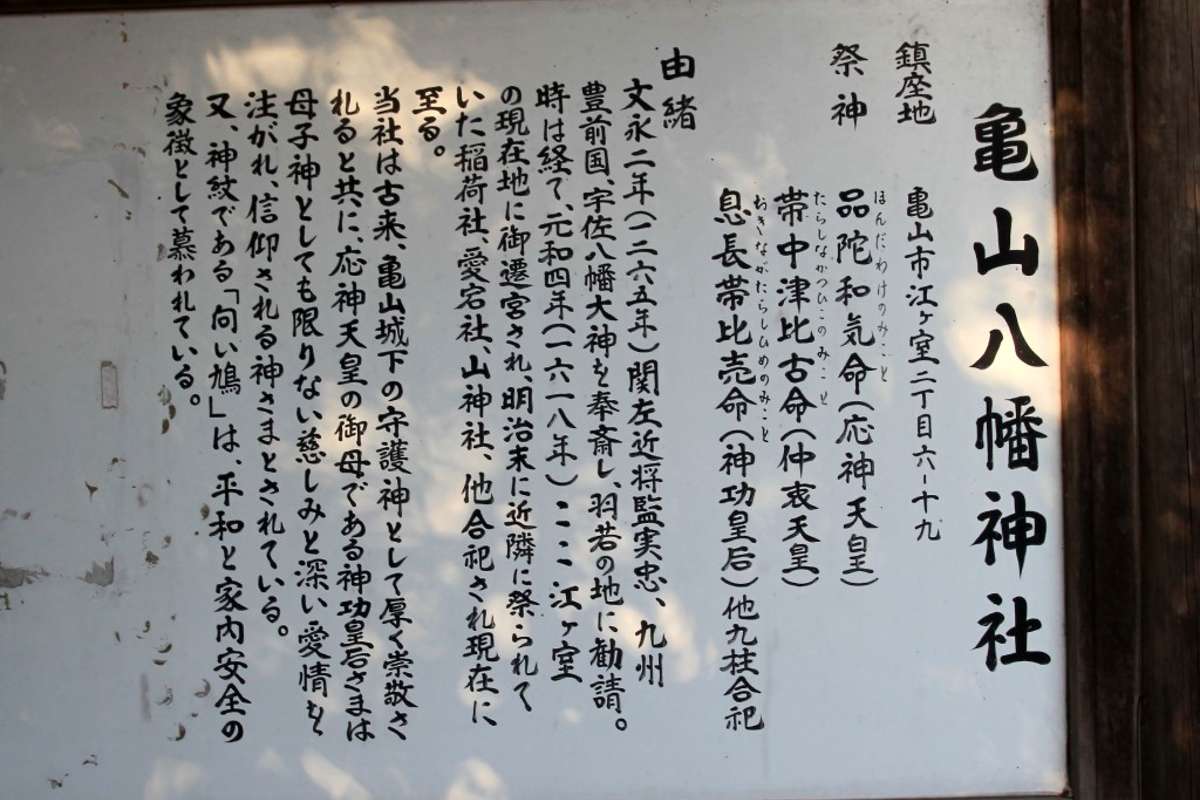 亀山八幡神社
鎮座地 亀山市江ヶ室二丁目六-十九
祭神 品陀和気命(応神天皇)
ほんだわけのみこと
帯中津比古命(仲哀天皇)
たらしなかつひこのみこと
息長帯比売命(神功皇后)他九柱合祀
おきながたらしひめのみこと
由緒
文永二年(一二六五年)関左近将監実忠、九州
豊前国、宇佐八幡大神を奉斎し、羽若の地に勧請。
時は経て、元和四年(一六一八年)ここ江ヶ室
の現在地に御遷宮され、明治末に近隣に祭られて
いた稲荷社、愛宕社、山神社、他合祀され現在に
至る。
当社は古来、亀山城下の守護神として厚く崇敬さ
れると共に、応神天皇の御母である神功皇后さまは
母子神としても限りない慈しみと深い愛情を
注がれ、信仰される神さまとされている。
又、神紋である「向い鳩」は、平和と家内安全の
象徴として慕われている。